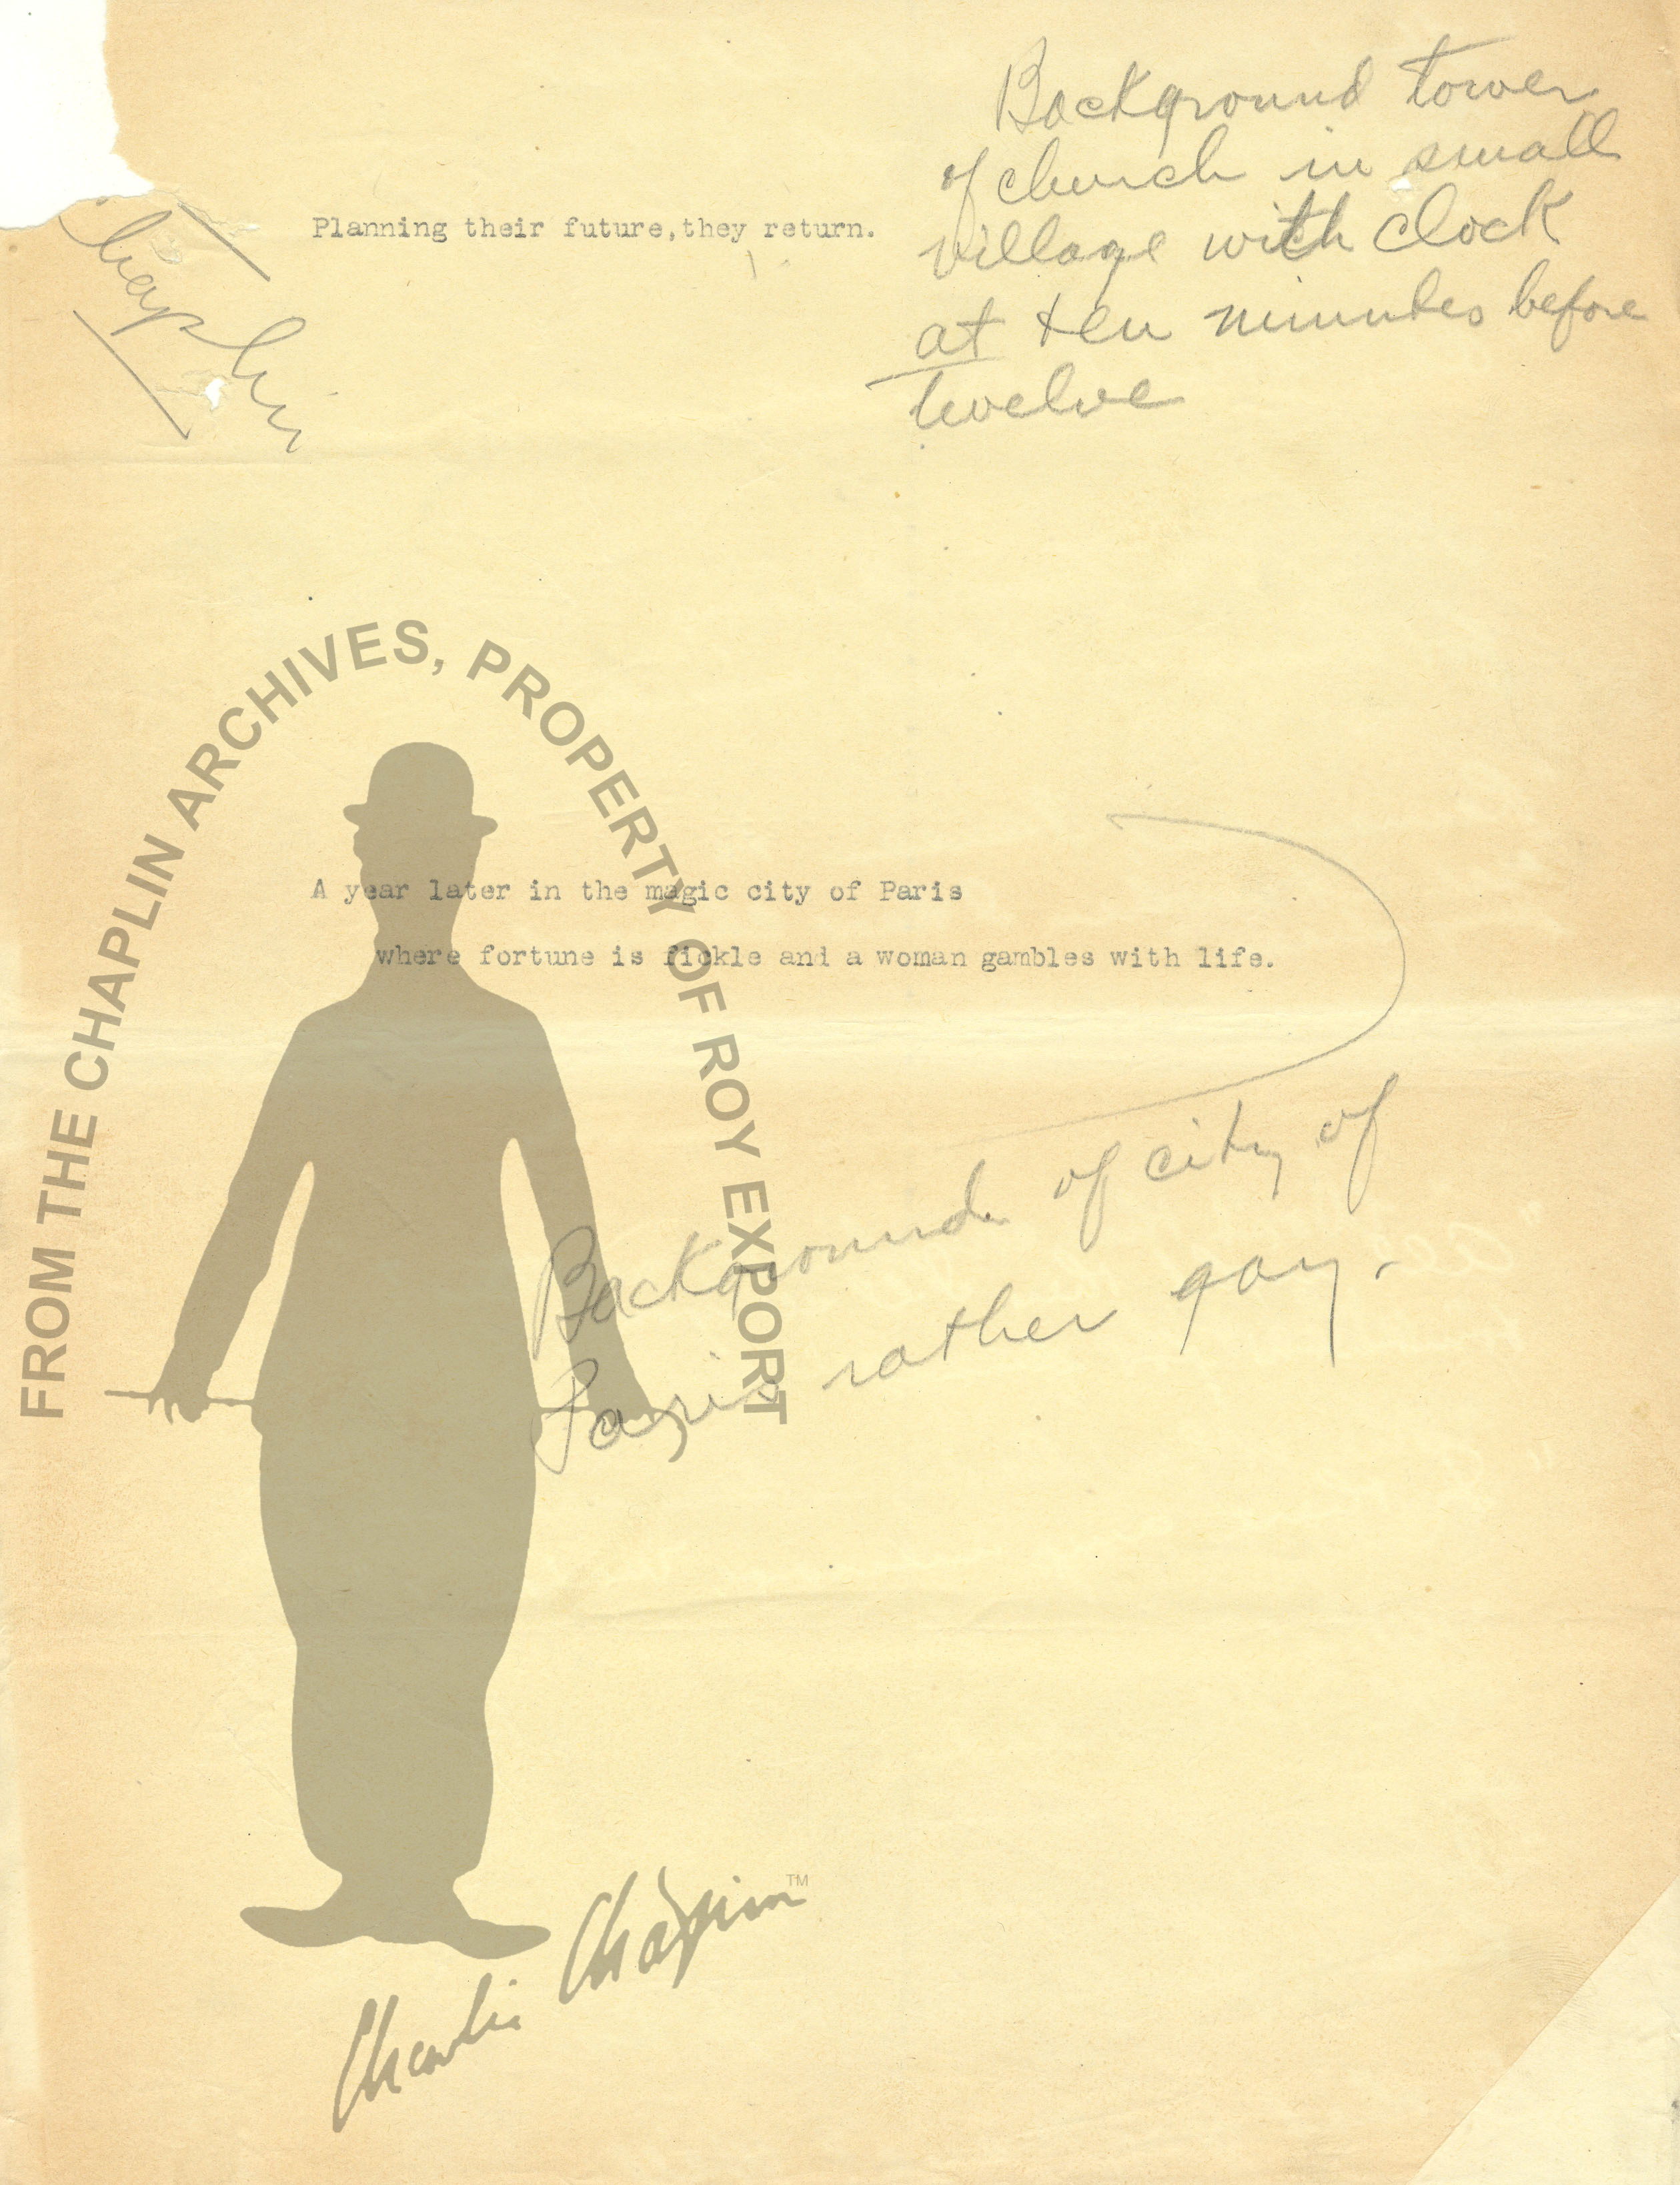 Background tower
of church in small
village with clock
at ten minutes before
twelve
Chaplin
Planning their future,they return.
FROM THE CHAPLIN ARCHIVES, PROPERTY OF ROY EXPORT
A year later in the magic city of Paris
where fortune is fickle and a woman gambles with life.
Background of city of
Paris rather gay.
Charlie Chaplin TM